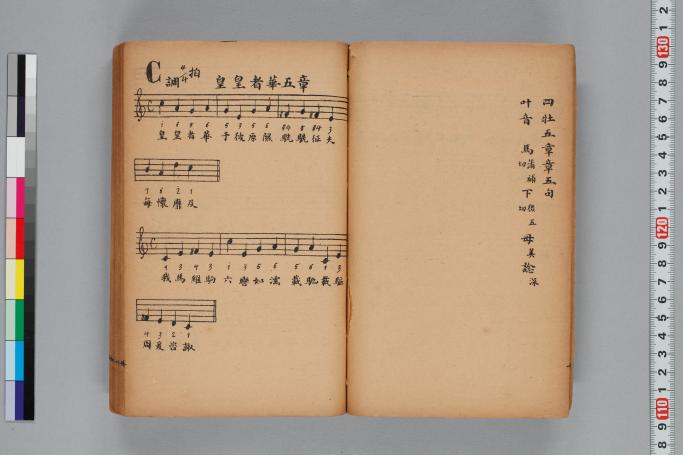 四牡五章章五句
叶音 馬 滿補切 下 後五切 母 美 諗 深
C調 4/4拍 皇皇者華五章
i 6 5 6 5 3 5 6 #4 5 #4 3
皇皇者華 于彼原隰 駪駪征夫
7 6 2 1
每懷靡及
1 3 4 3 i 3 5 6 5 6 1 3
我馬維駒 六轡如濡 載馳載驅
4 3 2 1
周爰咨諏
130
120
110